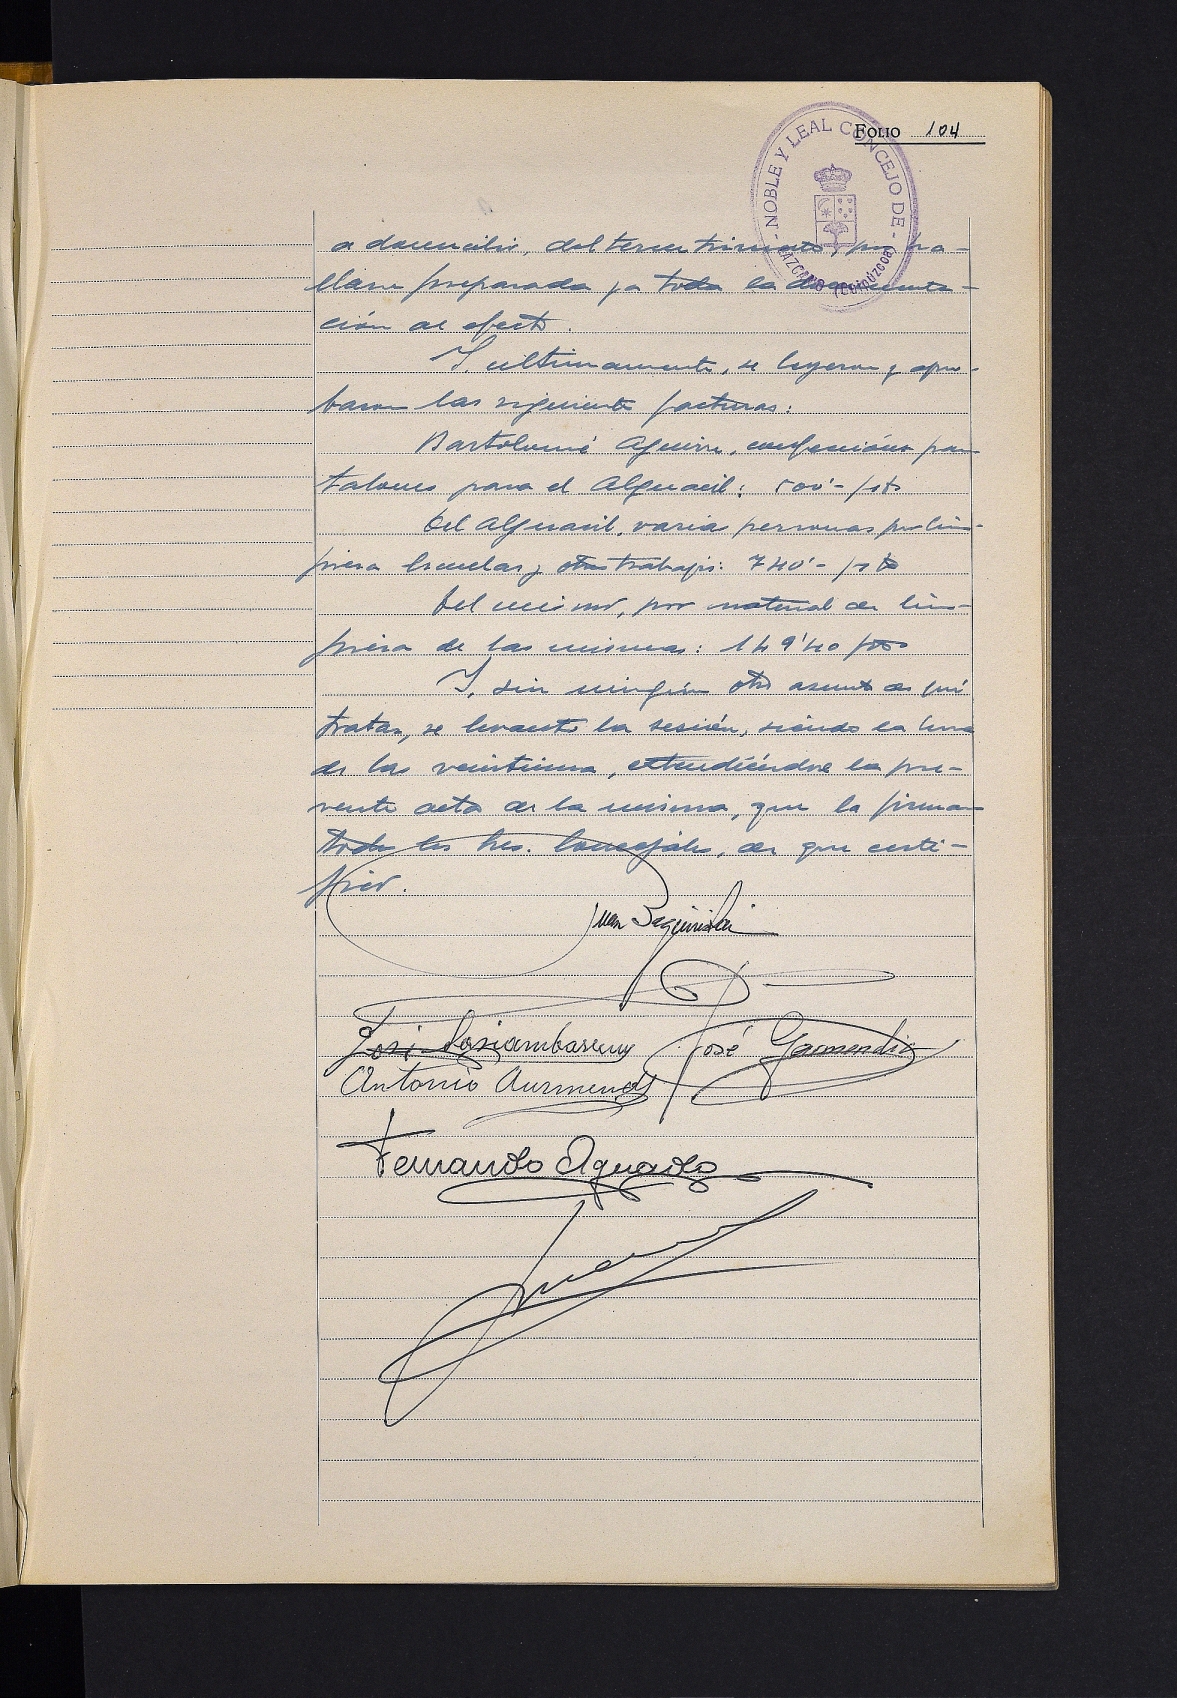 FOLIO 104
NOBLE Y LEAL CONCEJO DE
LAZCANO (Guipúzcoa)
a domicilio, del tercer trimestre, por ha-
llarse preparada ya toda la documenta-
ción al efecto.
Y, ultimamente, se leyeron y apro-
baron las siguientes facturas:
Bartolomé Aguirre, confección pan-
talones para el Alguacil: 500'- pts
Del Alguacil, varias personas por lim-
pieza Escuelas y otros trabajos: 740'- pts
Del mismo, por material de lim-
pieza de las mismas: 149'40 pts
Y, sin ningún otro asunto de que
tratar, se levantó la sesión, siendo la hora
de las veintiuna, extendiéndose la pre-
sente acta de la misma, que la firman
todos los Sres. Concejales, de que certi-
fico.
Juan
José
José Garmendia
Antonio
Fernando Aguado